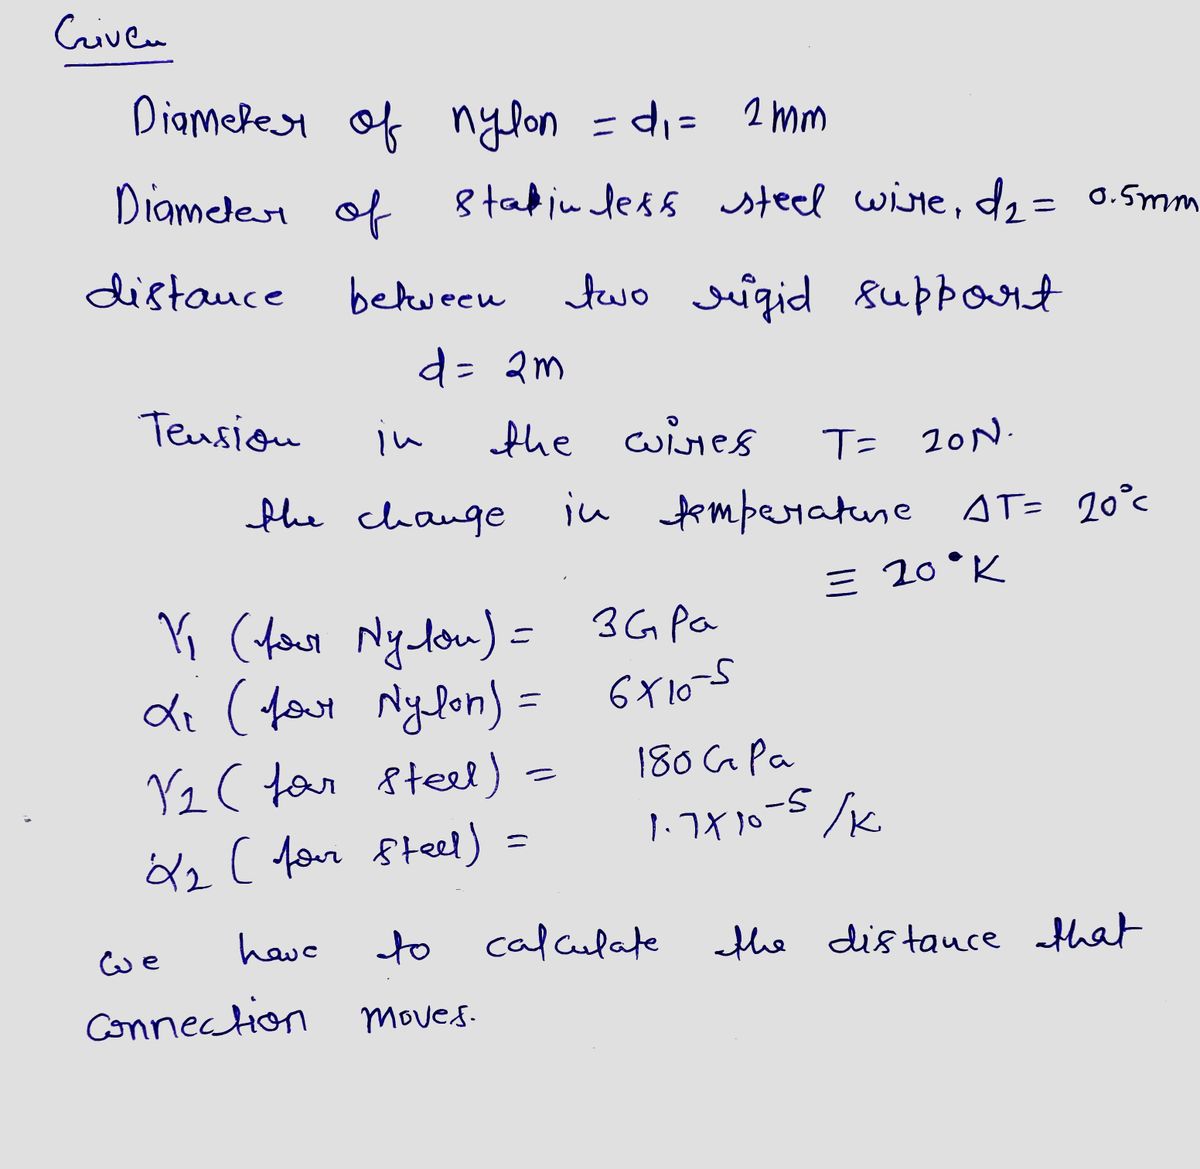 Given
Diameter of nylon = d₁ = 2mm
Diameter of stakinless steel wire, d₂ = 0.5mm
distance between two rigid support
d = 2m
Tension in the wires T= 20N.
the change in temperature ΔT= 20°c
≡ 20°K
Y₁ (for Nylon) = 3GPa
α₁ (for Nylon) = 6X10⁻⁵
Y₂ (for steel) = 180GPa
α₂ (for steel) = 1.7X10⁻⁵/K
we have to calculate the distance that
connection moves.